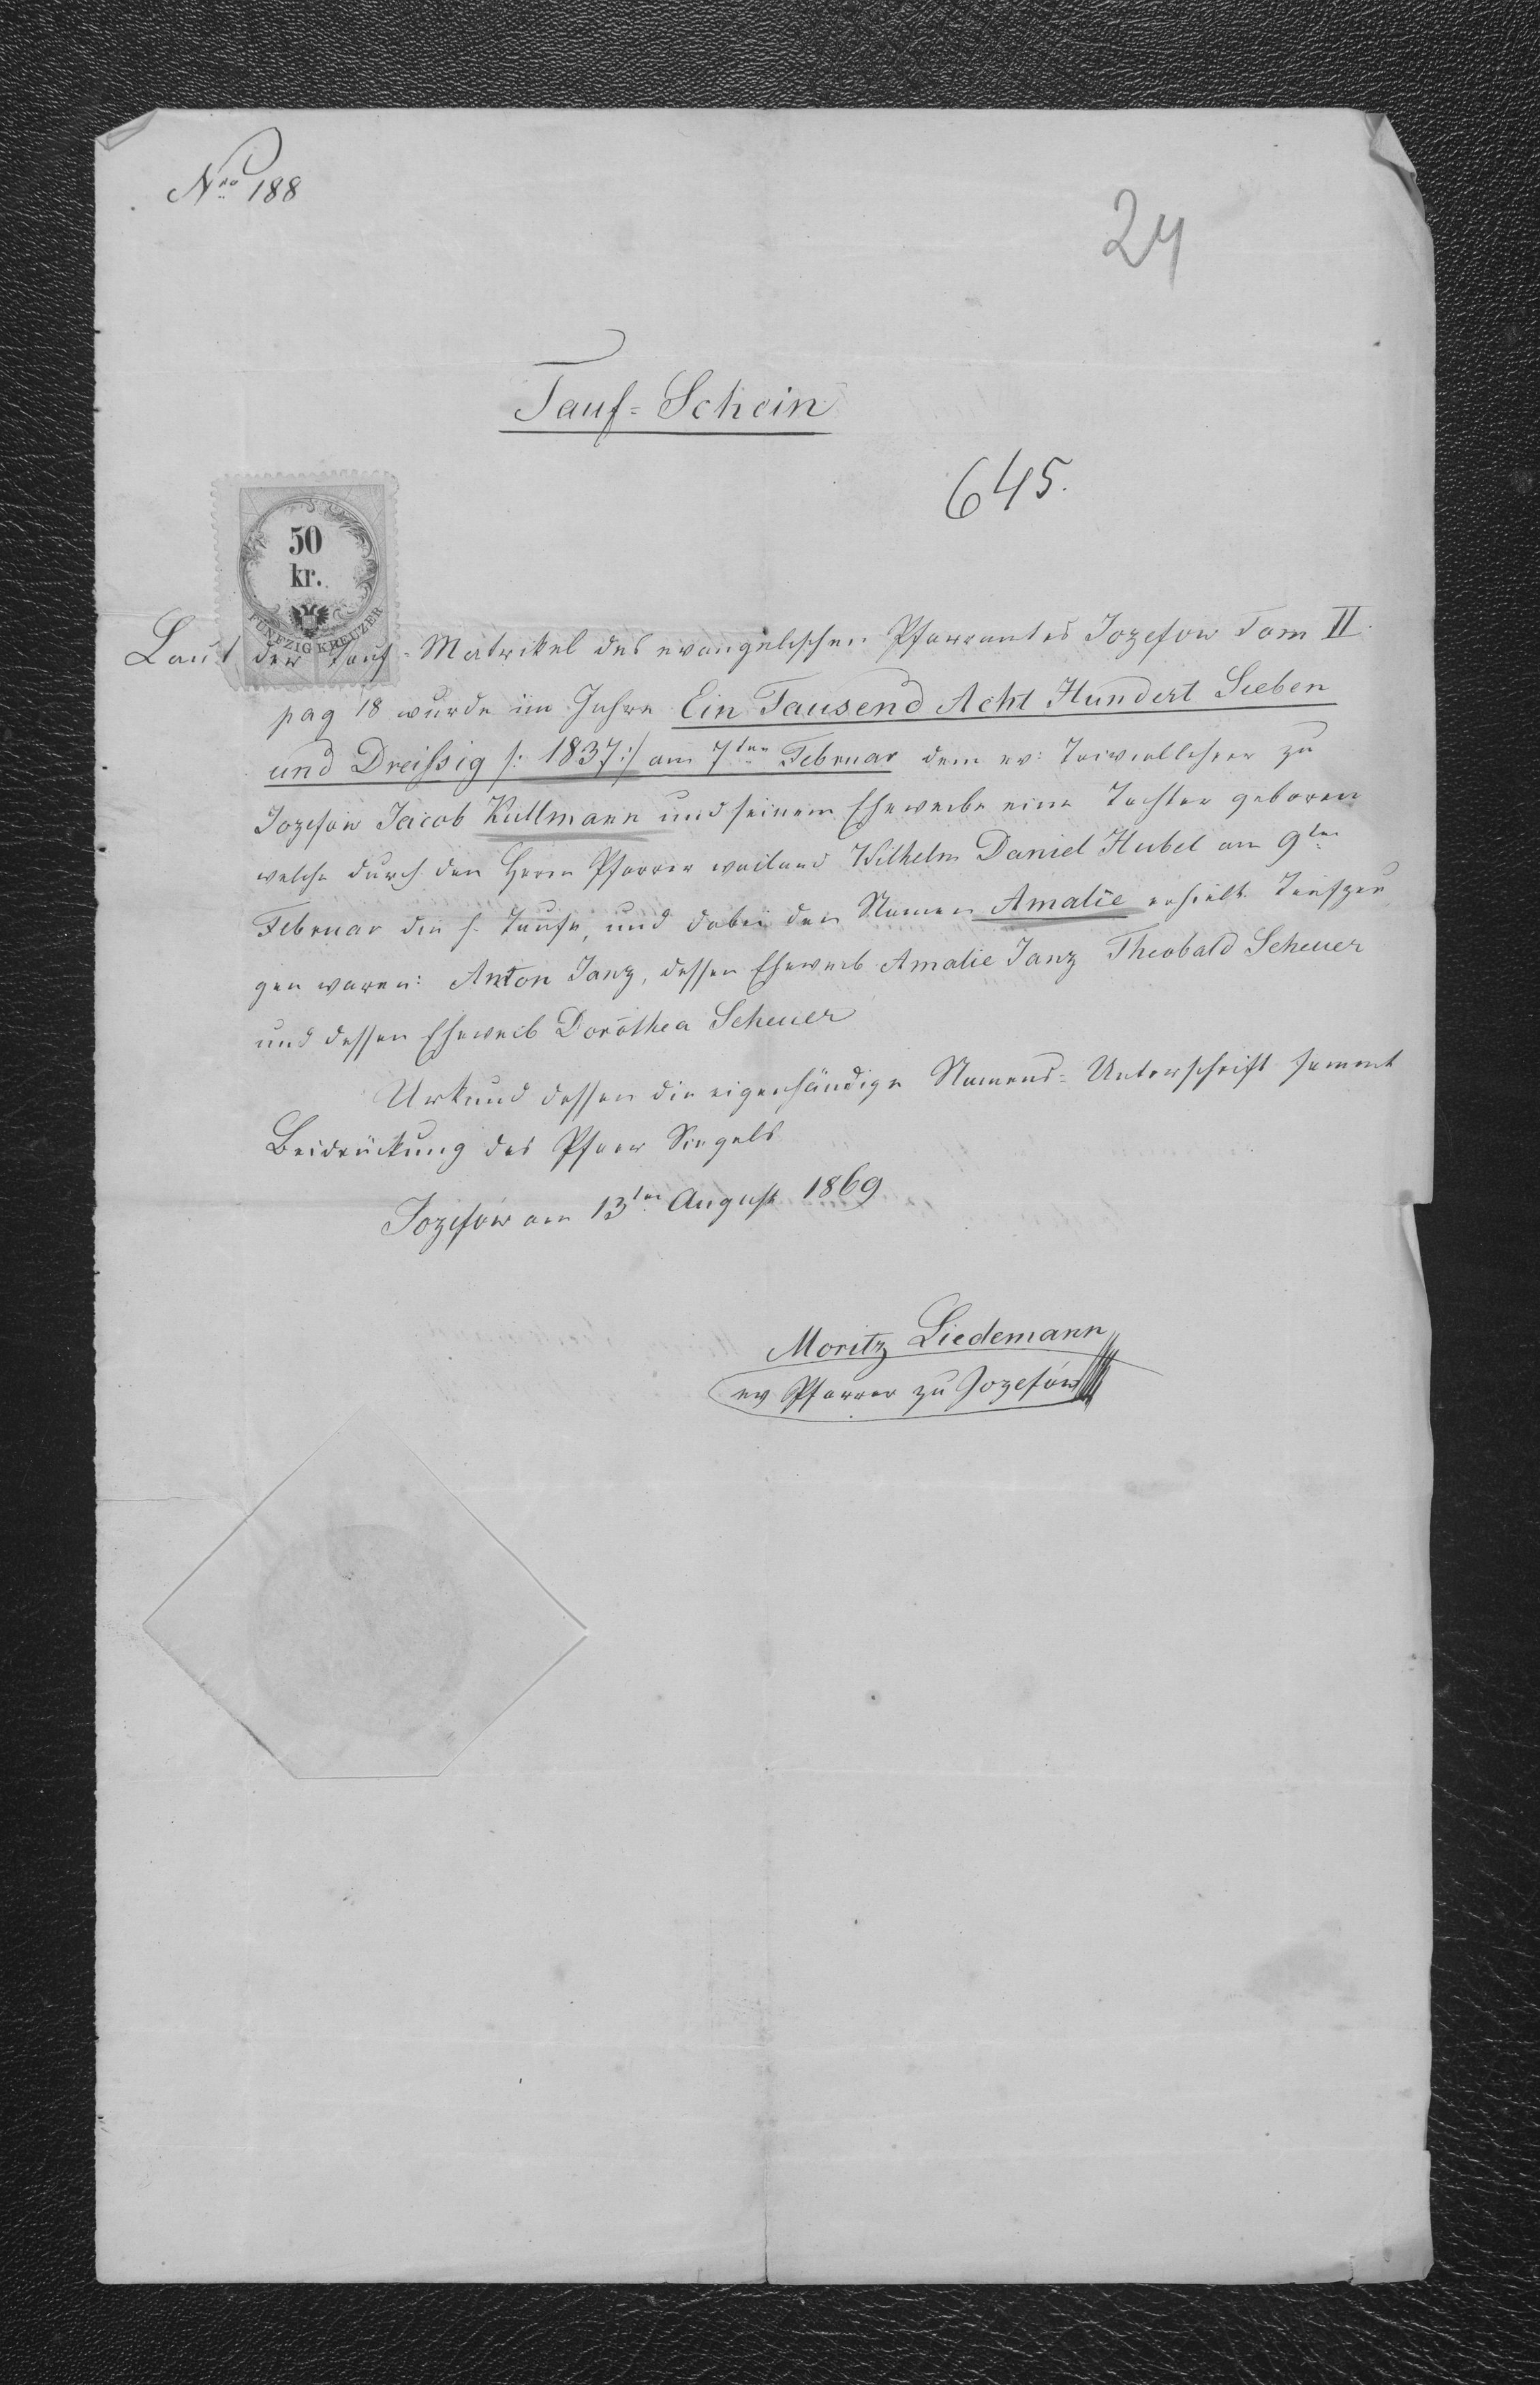 Nro 188
24
Tauf=Schein
645.
50
kr.
FÜNFZIG KREUZER
Laut der Tauf=Matrikel des evangelischen Pfarramtes Jozefow Tom II.
pag 18 wurde im Jahre Ein Tausend Acht Hundert Sieben
und Dreißig /: 1837 :/ am 7ten Februar dem ev: Triviallehrer zu
Jozefow Jacob Kullmann und seinem Eheweibe eine Tochter geboren
welche durch den Herrn Pfarrer weiland Wilhelm Daniel Hubel am 9ten
Februar die h. Taufe, und dabei den Namen Amalie erhielt. Taufzeu
gen waren: Anton Janz, dessen Eheweib Amalie Janz Theobald Scheuer
und dessen Eheweib Dorothea Scheuer
Urkund dessen die eigenhändige Namens=Unterschrift sammt
Beidrückung des Pfarr Siegels
Jozefów am 13ten August 1869
Moritz Liedemann
ev Pfarrer zu Jozefów